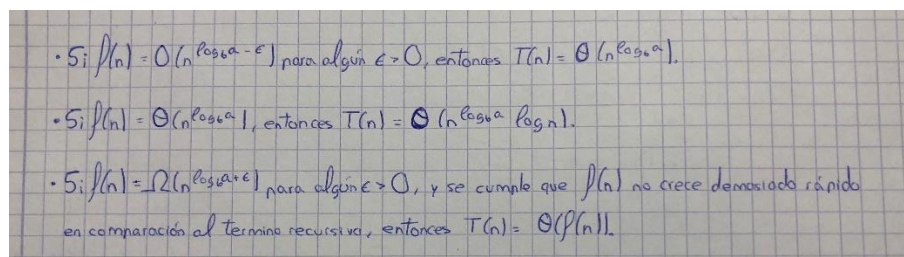 · Si f(n) = O(n^(log_b a - ε)) para algún ε > 0, entonces T(n) = Θ(n^(log_b a)).
· Si f(n) = Θ(n^(log_b a)), entonces T(n) = Θ(n^(log_b a) log n).
· Si f(n) = Ω(n^(log_b a + ε)) para algún ε > 0, y se cumple que f(n) no crece demasiado rápido
en comparación al termino recursivo, entonces T(n) = Θ(f(n)).